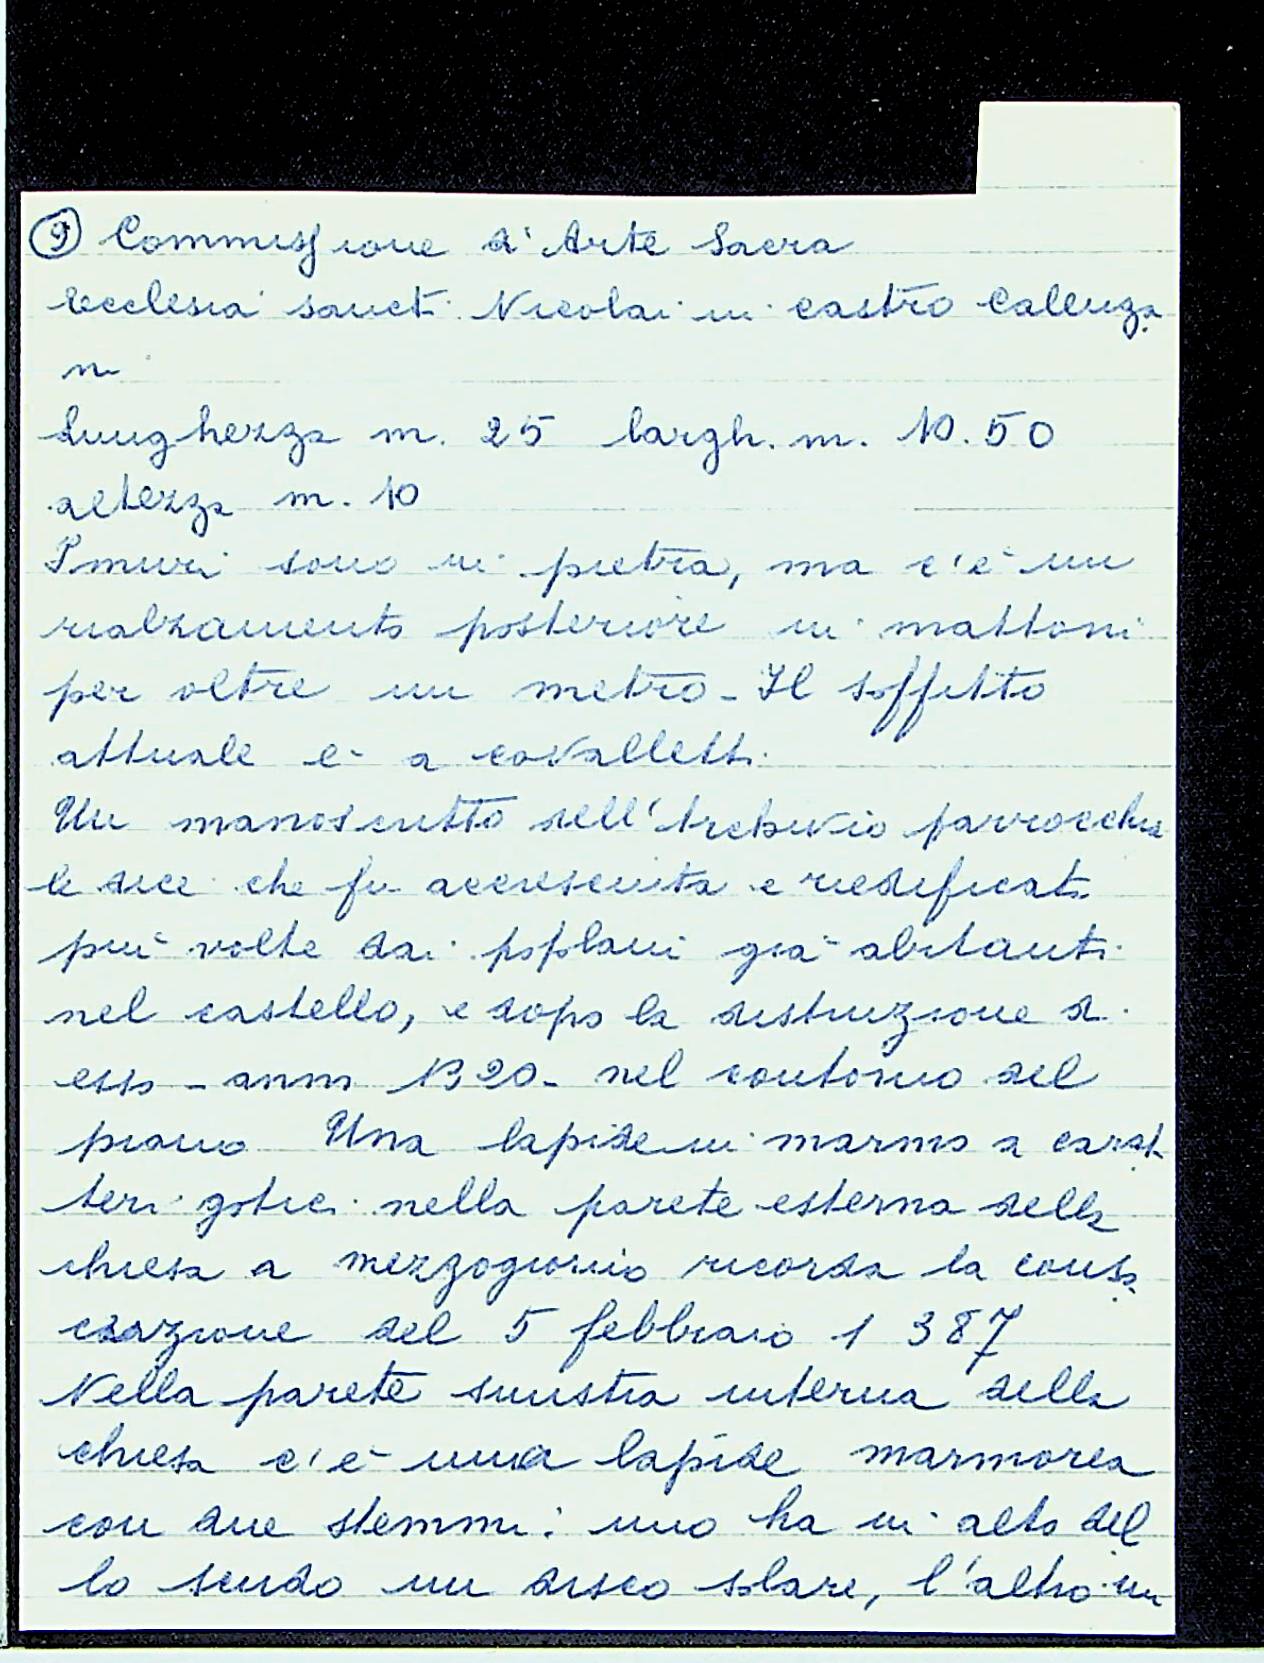 9 Commissione d'Arte Sacra
Ecclesia sancti Nicolai in castro Calenza
ni
Lunghezza m. 25 largh. m. 10.50
altezza m. 10
I muri sono in pietra, ma c'è un
rialzamento posteriore in mattoni
per oltre un metro - Il soffitto
attuale è a cavalletti.
Un manoscritto dell'Archivio parrocchia
le dice che fu accresciuta e riedificata
più volte dai popolani già abitanti
nel castello, e dopo la distruzione di
esso - anno 1320 - nel contorno del
piano Una lapide in marmo a carat-
teri gotici nella parete esterna della
chiesa a mezzogiorno ricorda la consa
crazione del 5 febbraio 1387
Nella parete sinistra interna della
chiesa c'è una lapide marmorea
con due stemmi: uno ha in alto del
lo scudo un disco solare, l'altro in